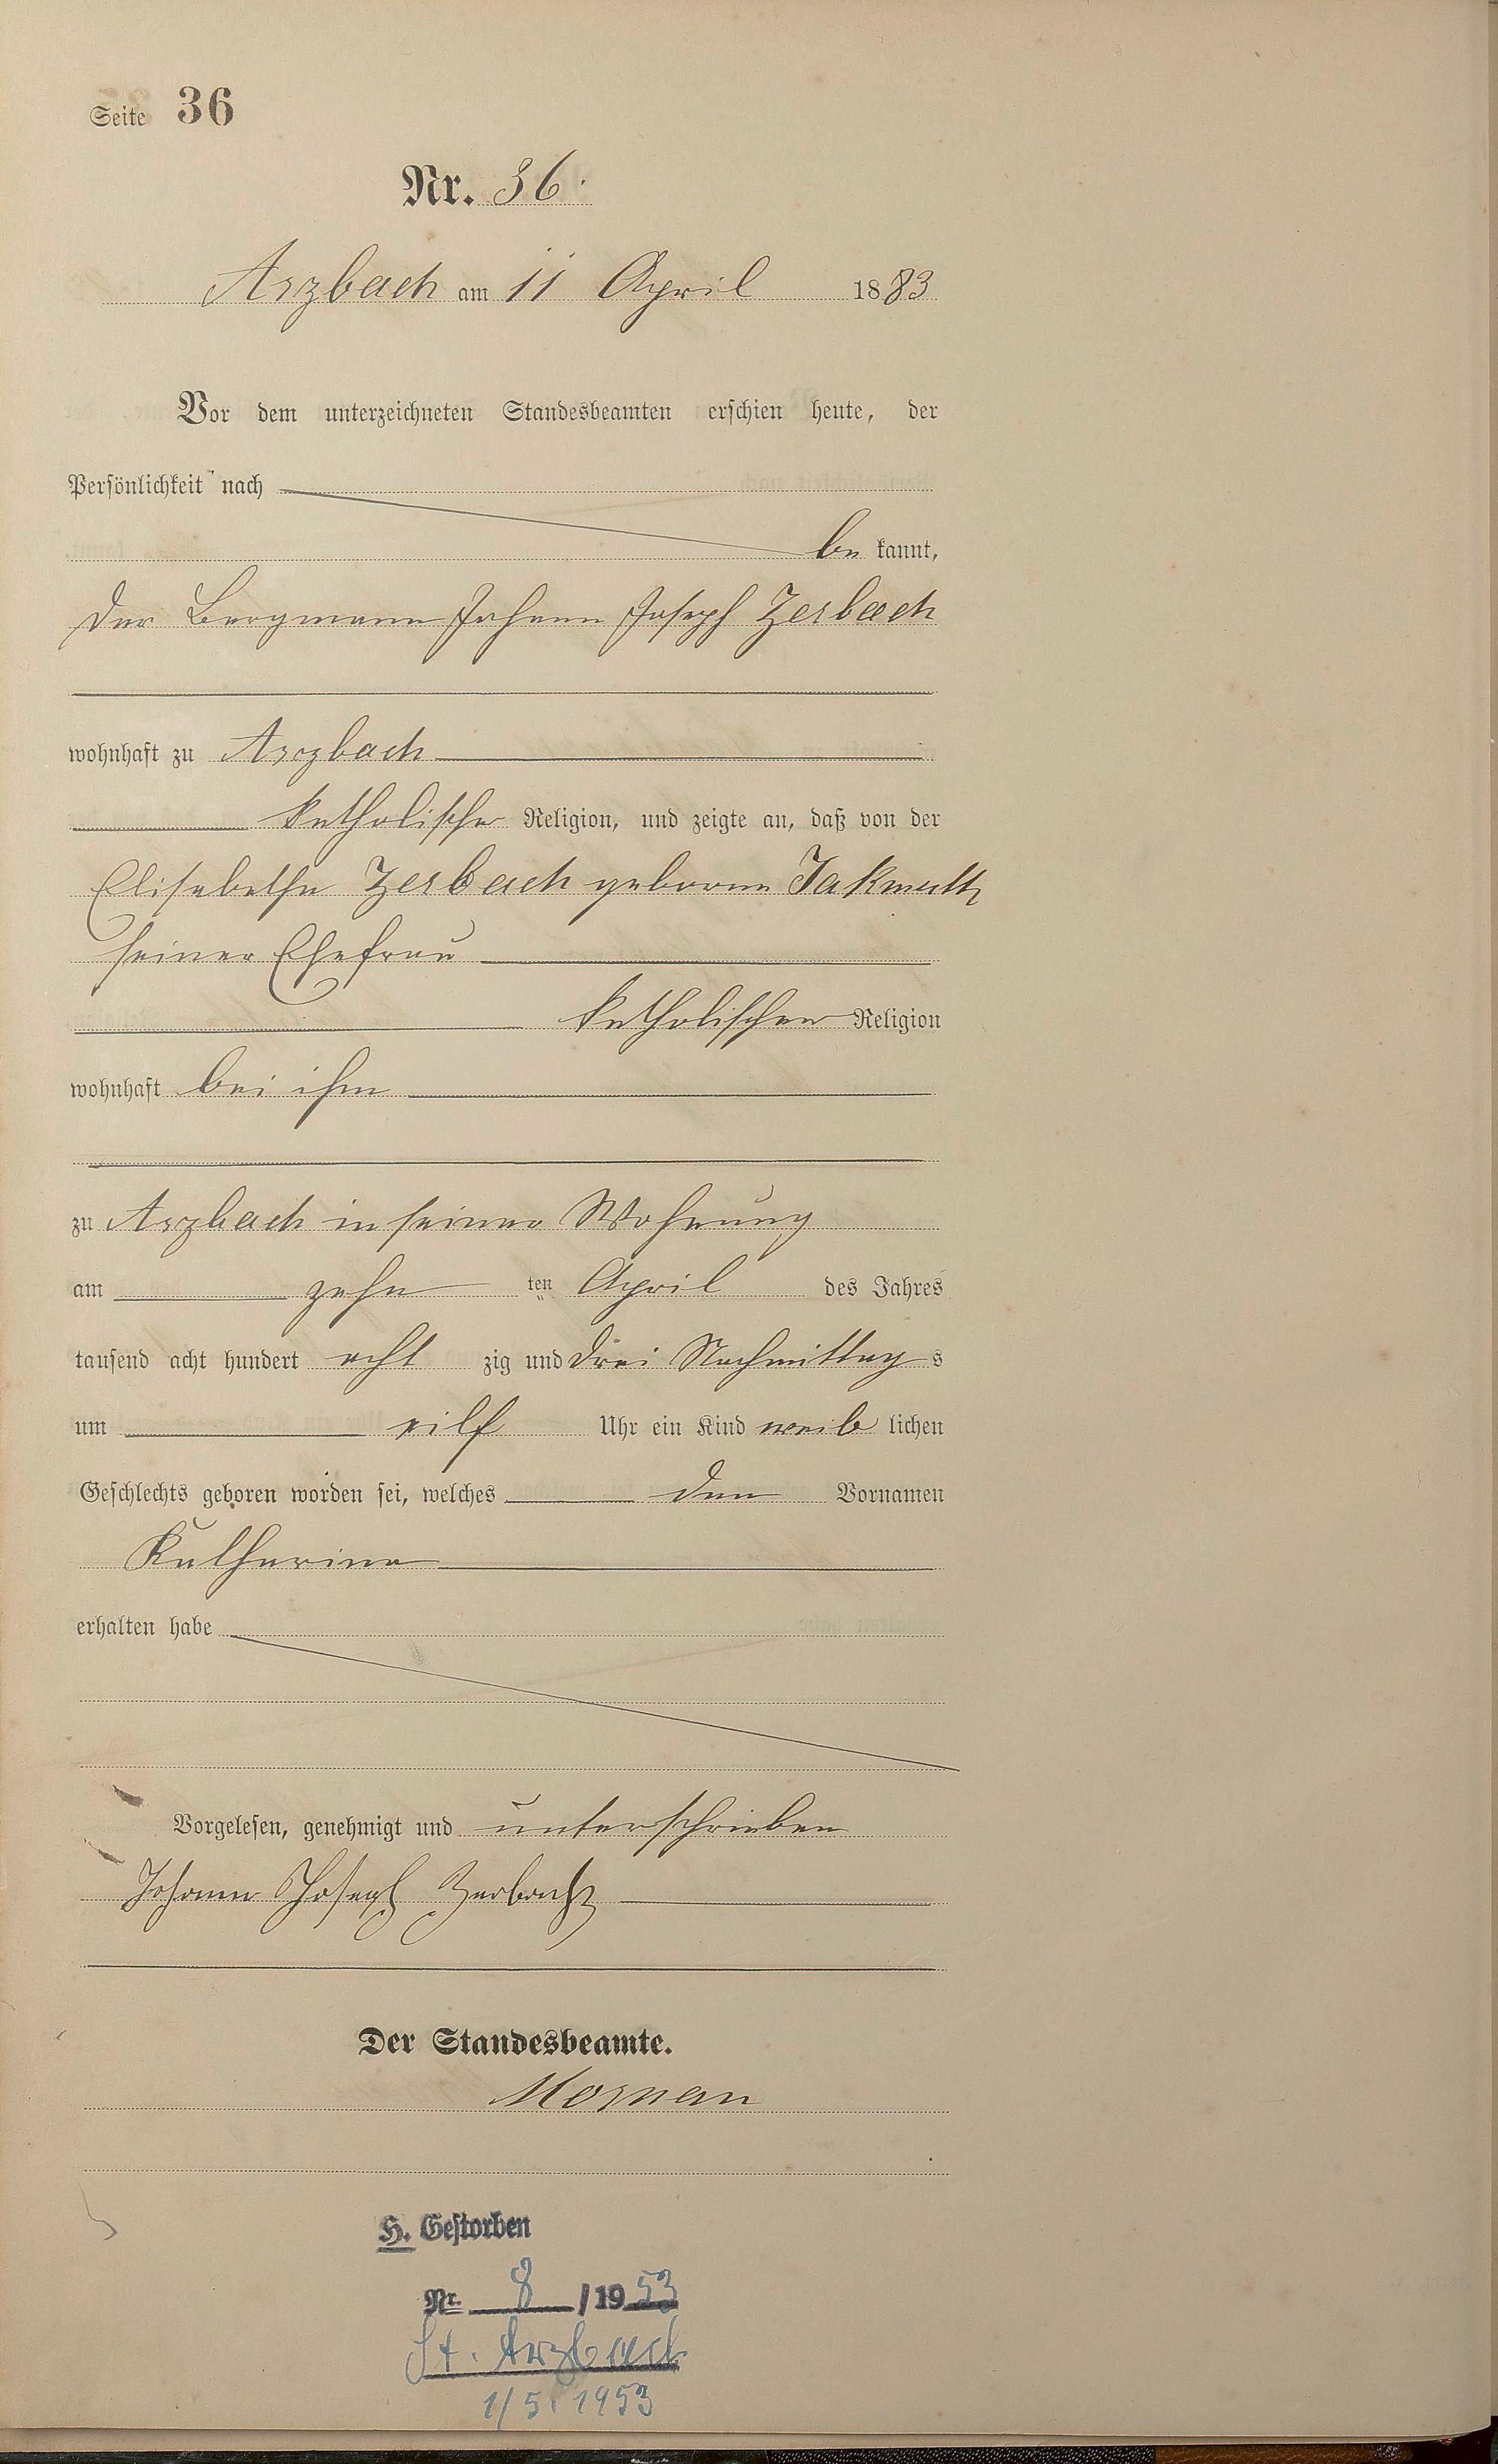 Seite 36
Nr. 36.
Arzbach am 11 April 1883
Vor dem unterzeichneten Standesbeamten erschien heute, der
Persönlichkeit nach
be kannt,
der Bergmann Johann Joseph Zerbach
wohnhaft zu Arzbach
katholischer Religion, und zeigte an, daß von der
Elisabetha Zerbach geborene Jakmuth
seiner Ehefrau
katholischer Religion
wohnhaft bei ihm
zu Arzbach in seiner Wohnung
am zehn ten April des Jahres
tausend acht hundert acht zig und drei Nachmittag s
um eilf Uhr ein Kind weib lichen
Geschlechts geboren worden sei, welches den Vornamen
Katharina
erhalten habe
Vorgelesen, genehmigt und unterschrieben
Johann Joseph Zerbach
Der Standesbeamte.
H. Gestorben
Nr. 8 /1953
St. Arzbach
1/5. 1953